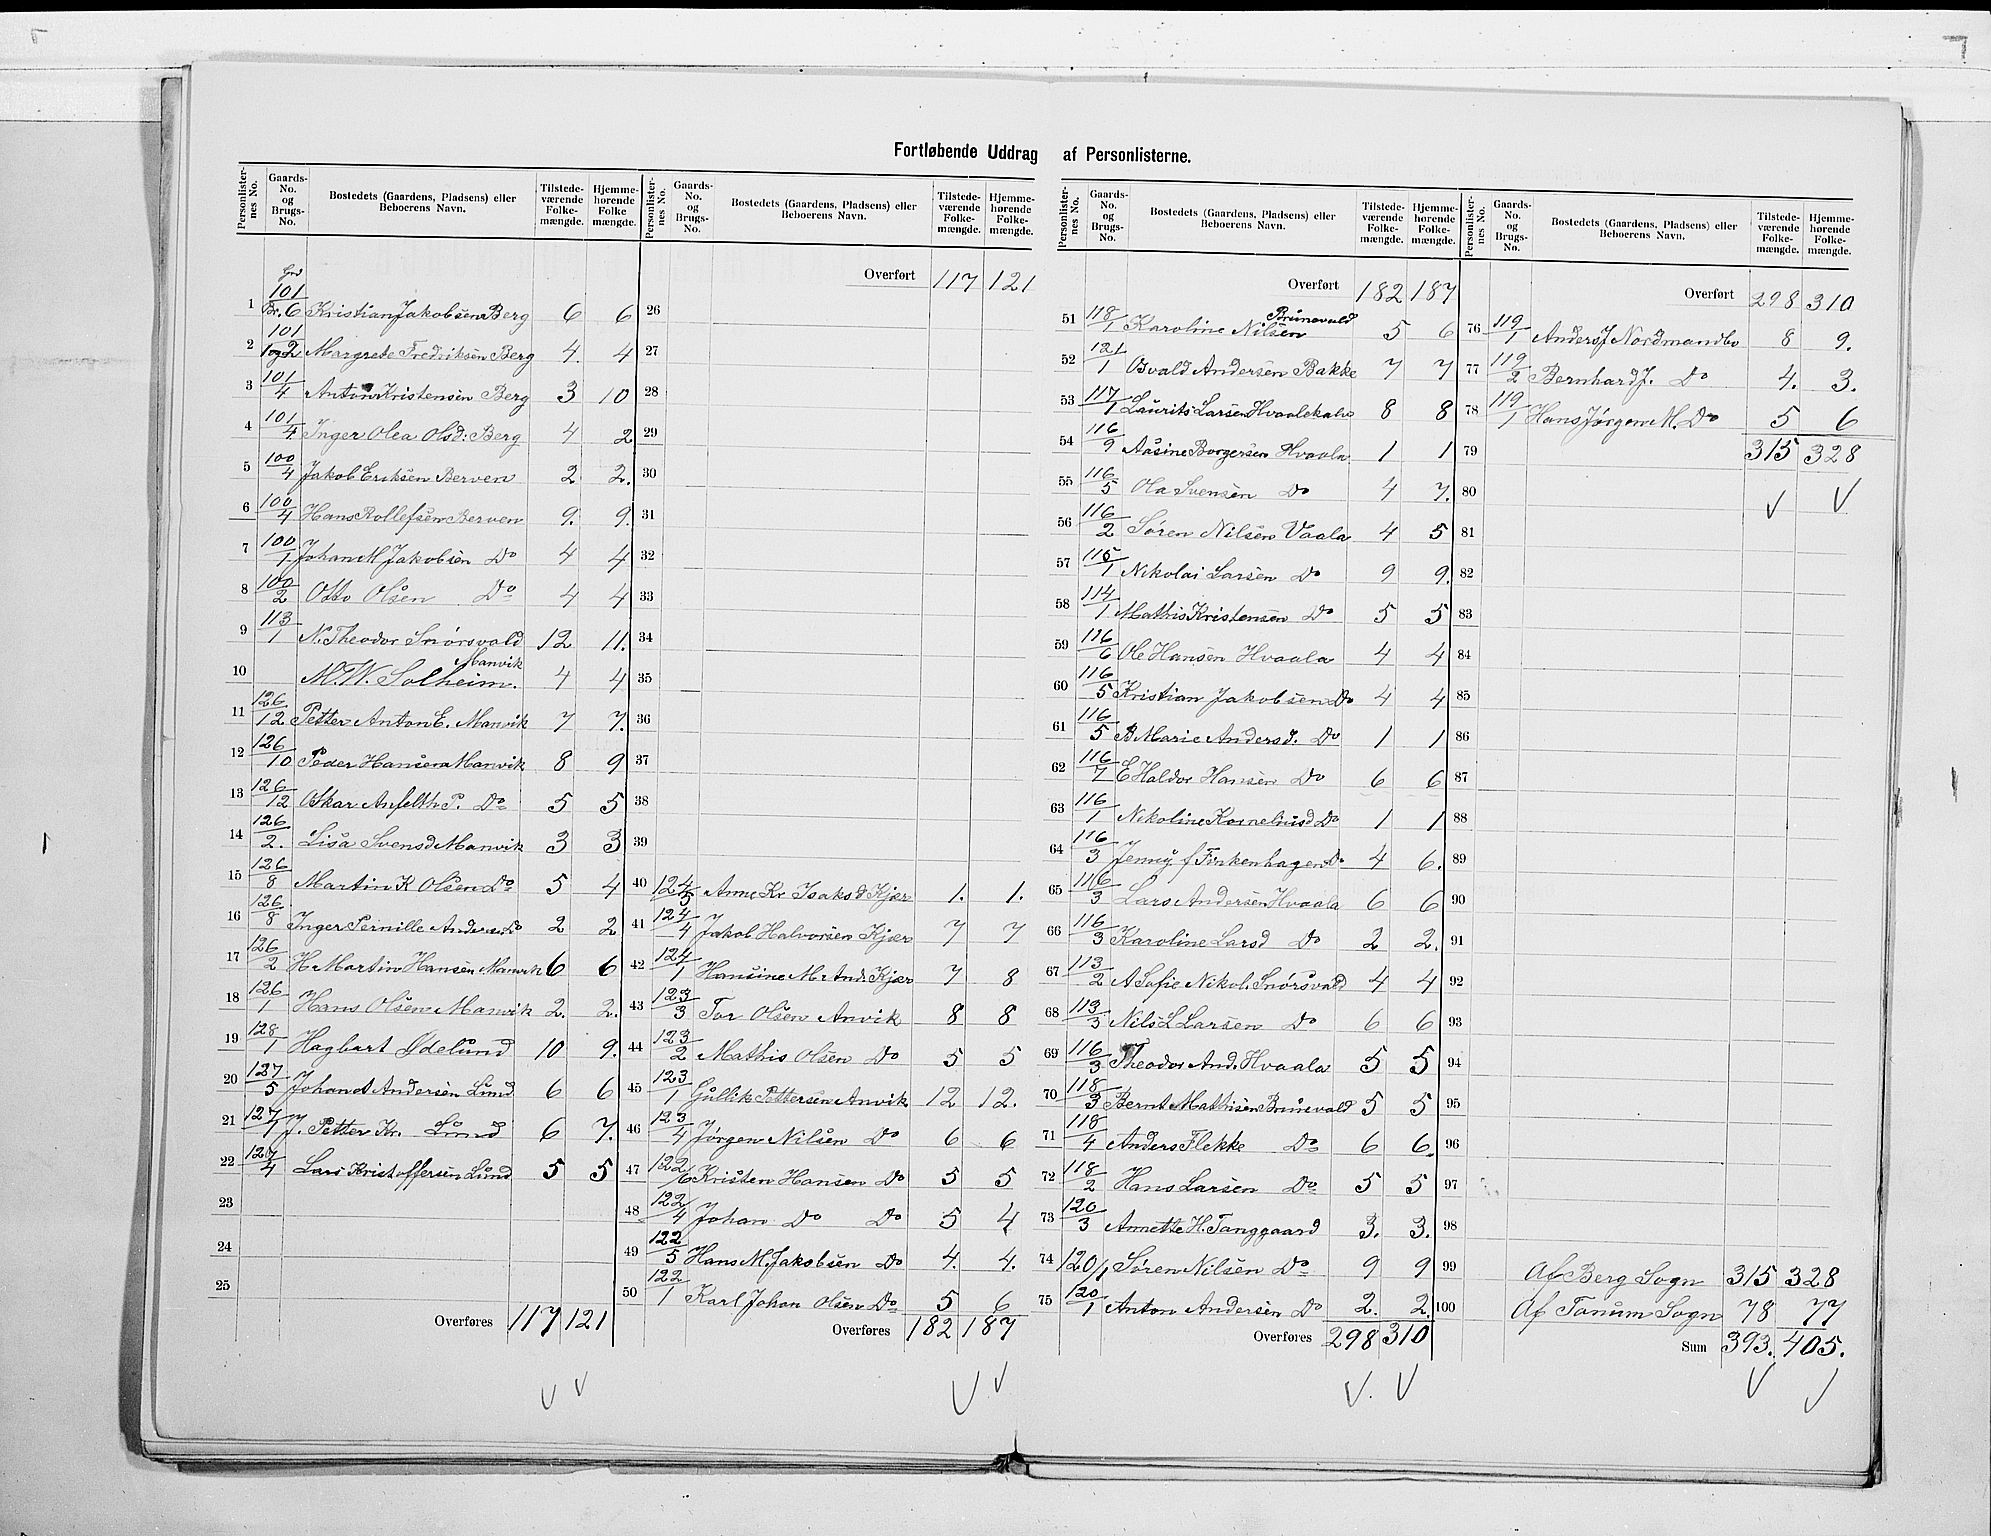 Fortløbende Uddrag af Personlisterne.
Personlister-nes No. | Gaards-No. og Brugs-No. | Bostedets (Gaardens, Pladsens) eller Beboerens Navn. | Tilstede-værende Folke-mængde. | Hjemme-hørende Folke mængde.
1 | Grd 101/Br. 6 | Kristian Jakobsen Berg | 6 | 6
2 | 101/1og2 | Margrete Fredriksen Berg | 4. | 4
3 | 101/4 | Anton Kristensen Berg | 3 | 10
4 | 101/4 | Inger Olea Olsd: Berg | 4 | 2
5 | 100/4 | Jakob Eriksen Berven | 2 | 2.
6 | 100/4 | Hans Rollefsen Berven | 9. | 9.
7 | 100/1 | Johan M Jakobsen Do | 4 | 4
8 | 100/2 | Otto Olsen Do | 4 | 4
9 | 113/1 | N. Theodor Snørsvald | 12 | 11.
10 | M. W. Solheim. Manvik | 4 | 4
11 | 126/12 | Petter Anton E. Manvik | 7 | 7.
12 | 126/10 | Peder Hansen Manvik | 8 | 9
13 | 126/12 | Oskar Anfelth P. Do | 5 | 5
14 | 126/2. | Lisa Svensd Manvik | 3 | 3
15 | 126/8 | Martin K Olsen Do | 5 | 4
16 | 126/8 | Inger Pernille Anders Do | 2 | 2
17 | 126/2 | H. Martin Hansen Manvik | 6 | 6
18 | 126/1 | Hans Olsen Manvik | 2. | 2.
19 | 128/1 | Hagbart Ødelund | 10 | 9.
20 | 127/5 | Johan A Andersen Lund | 6 | 6
21 | 127/1 | J. Petter Kr. Lund | 6 | 7.
22 | 127/4 | Lars Kristoffersen Lund | 5 | 5
23
24
25
Overføres | 117 | 121
Personlister-nes No. | Gaards-No. og Brugs-No. | Bostedets (Gaardens, Pladsens) eller Beboerens Navn. | Tilstede-værende Folke-mængde. | Hjemme-hørende Folke-mængde.
Overført | 117 | 121
26
27
28
29
30
31
32
33
34
35
36
37
38
39
40 | 124/5 | Anne Kr Isaksd Kjær | 1. | 1.
41 | 124/4 | Jakob Halvorsen Kjær | 7 | 7
42 | 124/1 | Hansine M. And. Kjær | 7 | 8
43 | 123/3 | Tor Olsen Anvik | 8 | 8
44 | 123/2 | Mathis Olsen Do | 5 | 5
45 | 123/1 | Gullik Pettersen Anvik | 12 | 12.
46 | 123/4 | Jørgen Nilsen Do | 6 | 6
47 | 122/6 | Kristen Hansen Do | 5 | 5
48 | 122/4 | Johan Do Do | 5 | 4
49 | 122/5 | Hans M. Jakobsen Do | 4. | 4.
50 | 122/1 | Karl Johan Olsen Do | 5 | 6
Overføres | 182 | 187
Personlister-nes No. | Gaards-No. og Brugs-No. | Bostedets (Gaardens, Pladsens) eller Beboerens Navn. | Tilstede-værende Folke-mængde. | Hjemme-hørende Folke-mængde.
Overført | 182 | 187
51 | 118/1 | Karoline Nilsen Brunevald | 5 | 6
52 | 121/1 | Osvald Andersen Bakke | 7 | 7
53 | 117/1 | Laurits Larsen | 8 | 8
54 | 116/9 | Aasine Borgersen Hvaala | 1 | 1
55 | 116/5 | Ola Svensen Do | 4 | 7.
56 | 116/2 | Søren Nilsen Vaala | 4 | 5
57 | 115/1 | Nikolai Larsen Do | 9 | 9.
58 | 114/1 | Mathis Kristensen Do | 5 | 5
59 | 116/6 | Ole Hansen Hvaala | 4 | 4
60 | 116/5 | Kristian Jakobsen Do | 4 | 4
61 | 116/5 | B Marie Andersd. Do | 1 | 1
62 | 116/7 | E Haldor Hansen Do | 6 | 6
63 | 116/1 | Nikoline Korneliusd Do | 1 | 1
64 | 116/3 | Jenny f Finkenhagen Do | 4 | 6.
65 | 116/3 | Lars Andersen Hvaala | 6 | 6
66 | 116/3 | Karoline Larsd Do | 2 | 2.
67 | 113/2 | A Sofie Nikol. Snørsvald | 4 | 4
68 | 113/3 | Nils L Larsen Do | 6 | 6
69 | 116/3 | Theodor And. Hvaala | 5 | 5
70 | 118/3 | Bernt Mathisen Brunevald | 5 | 5
71 | 118/4 | Anders Flekke Do | 6 | 6.
72 | 118/2 | Hans Larsen Do | 5 | 5
73 | 120/3 | Annette H. Tanggaard | 3. | 3.
74 | 120/1 | Søren Nilsen Do | 9 | 9
75 | 120/1 | Anton Andersen Do | 2. | 2.
Overføres | 298 | 310
Personlister-nes No. | Gaards-No. og Brugs-No. | Bostedets (Gaardens, Pladsens) eller Beboerens Navn. | Tilstede-værende Folke-mængde. | Hjemme-hørende Folke-mængde.
Overført | 298 | 310
76 | 119/1 | Anders J Nordmandbo | 8 | 9.
77 | 119/2 | Bernhard J. Do | 4. | 3.
78 | 119/1 | Hans Jørgen M. Do | 5 | 6
79 | 315 | 328
80
81
82
83
84
85
86
87
88
89
90
91
92
93
94
95
96
97
98
99 | Af Berg Sogn | 315 | 328
100 | Af Tanum Sogn | 78 | 77
Sum | 393. | 405.